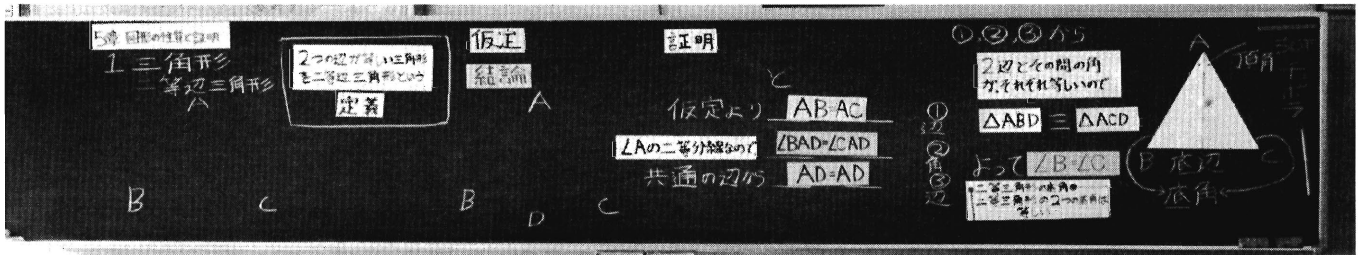 5章 図形の性質と証明
1 三角形
二等辺三角形
A
B
C
2つの辺が等しい三角形
を二等辺三角形という
定義
仮定
結論
A
B
D
C
証明
と
仮定より AB=AC
∠Aの二等分線なので ∠BAD=∠CAD
共通の辺から AD=AD
①
辺
②
角
③
辺
①,②,③から
2辺とその間の角
がそれぞれ等しいので
△ABD ≡ △ACD
よって ∠B=∠C
二等辺三角形の底角
二等辺三角形の2つの底角は
等しい
A
頂角
B 底辺 C
底角